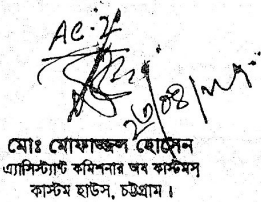 AC-2
২৩/০৪/
মোঃ মোফাজ্জল হোসেন
এ্যাসিস্ট্যান্ট কমিশনার অব কাস্টমস্
কাস্টম হাউস, চট্টগ্রাম।